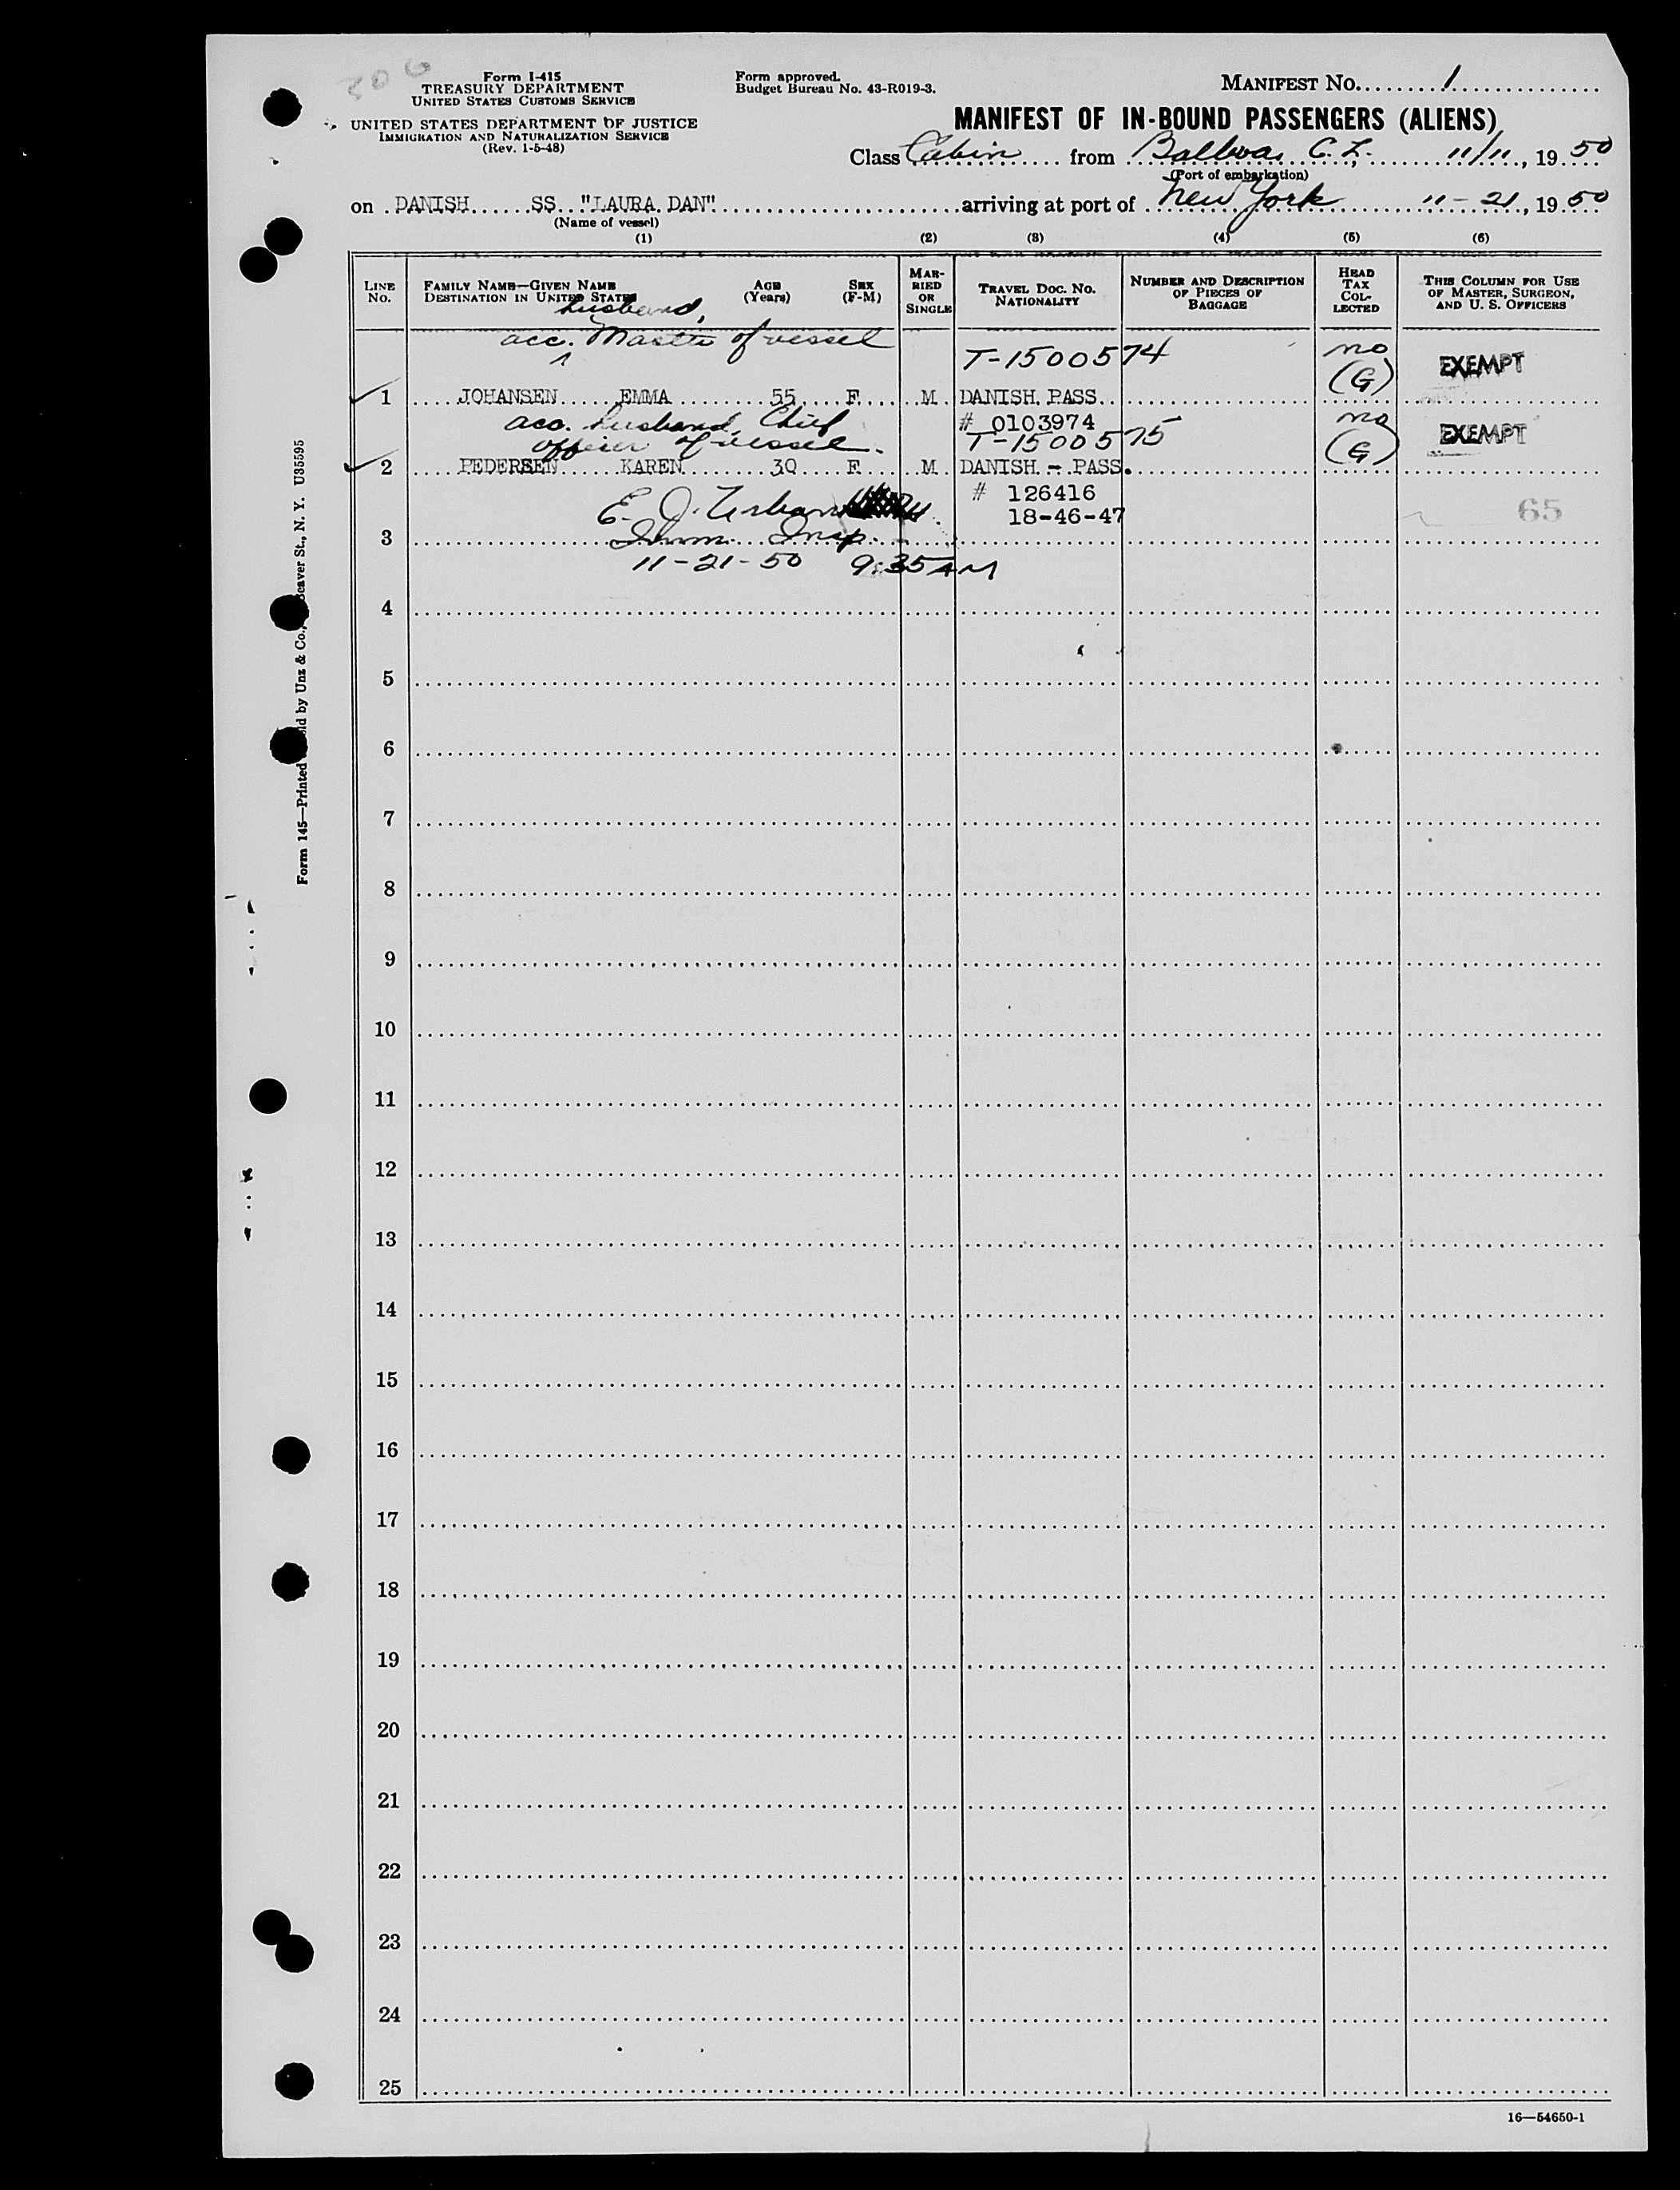 206
Form I-415
TREASURY DEPARTMENT
UNITED STATES CUSTOMS SERVICE
UNITED STATES DEPARTMENT OF JUSTICE
IMMIGRATION AND NATURALIZATION SERVICE
(Rev. 1-5-48)
Form approved.
Budget Bureau No. 43-R019-3.
MANIFEST No. 1
MANIFEST OF IN-BOUND PASSENGERS (ALIENS)
Class Cabin from Balboa C. Z. 11/11, 1950
(Port of embarkation)
on DANISH SS "LAURA DAN" arriving at port of New York 11-21, 1950
(Name of vessel)
(1) (2) (3) (4) (5) (6)
LINE No.
FAMILY NAME—GIVEN NAME
DESTINATION IN UNITED STATES
AGE (Years)
SEX (F-M)
MARRIED OR SINGLE
TRAVEL DOC. NO. NATIONALITY
NUMBER AND DESCRIPTION OF PIECES OF BAGGAGE
HEAD TAX COLLECTED
THIS COLUMN FOR USE OF MASTER, SURGEON, AND U. S. OFFICERS
husband,
acc. Master of vessel T-1500574 no EXEMPT
(G)
1 JOHANSEN EMMA 55 F M DANISH PASS
acc. husband, Chief # 0103974 no EXEMPT
officer of vessel. T-1500575 (G)
2 PEDERSEN KAREN 30 F M DANISH - PASS.
# 126416
E. J. Urban 18-46-47 65
3 Imm. Insp.
11-21-50 9:35 AM
4
5
6
7
8
9
10
11
12
13
14
15
16
17
18
19
20
21
22
23
24
25
16—54650-1
Form 145—Printed
ld by Unz & Co.,
eaver St., N. Y. U35595